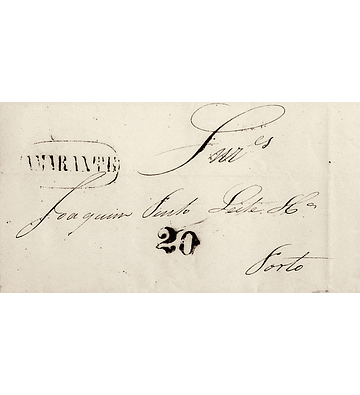 Snr.es
AMARANTE
Joaquim Pinto Leite Fº
20
Porto